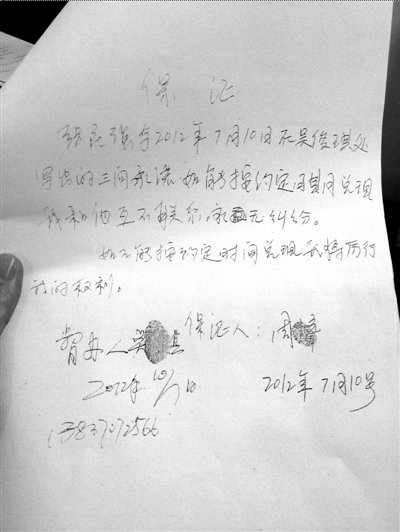 保 证
张 强于2012年7月10日在吴俊琪处
写出的三问承诺如能按约定周期兑现
我和他互不联系,永 无纠纷。
如不能按约定时间兑现我将履行
我的权利。
督办人 保证人:周
2012年10/7 2012年7月10号
13837072566